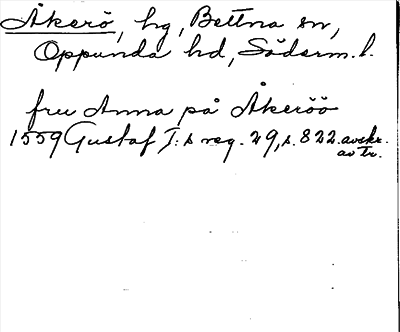 Åkerö, hg, Bettna sn,
Oppunda hd, Söderm. l.
fru Anna på Åkeröö
1559 Gustaf I:s reg. 29, s. 822. avskr.
av tr.